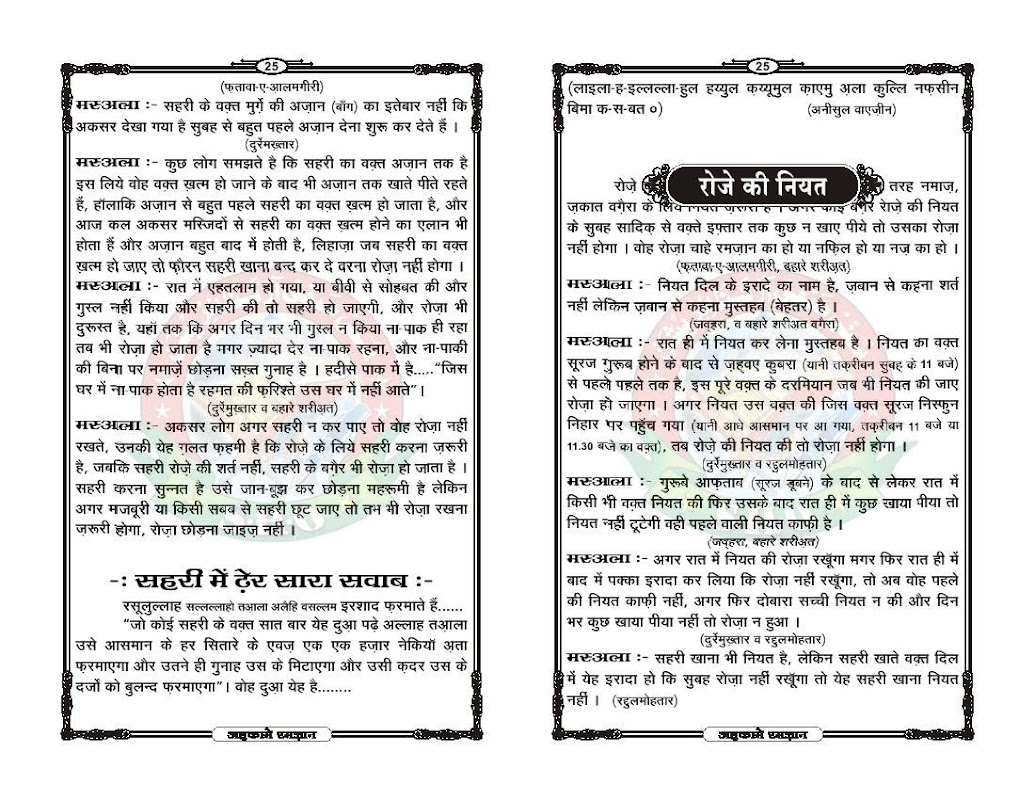 25
(फ़तावा-ए-आलमगीरी)
मस्अला :- सहरी के वक़्त मुर्ग़े की अज़ान (बाँग) का इतेबार नहीं कि
अकसर देखा गया है सुबह से बहुत पहले अज़ान देना शुरू कर देते हैं ।
(दुर्रेमख़्तार)
मस्अला :- कुछ लोग समझते है कि सहरी का वक़्त अज़ान तक है
इस लिये वोह वक़्त ख़त्म हो जाने के बाद भी अज़ान तक खाते पीते रहते
हैं, हॉलाकि अज़ान से बहुत पहले सहरी का वक़्त ख़त्म हो जाता है, और
आज कल अकसर मस्जिदों से सहरी का वक़्त ख़त्म होने का एलान भी
होता हैं और अज़ान बहुत बाद में होती है, लिहाज़ा जब सहरी का वक़्त
ख़त्म हो जाए तो फ़ौरन सहरी खाना बन्द कर दे वरना रोज़ा नहीं होगा ।
मस्अला :- रात में एहतलाम हो गया, या बीवी से सोहबत की और
गुस्ल नहीं किया और सहरी की तो सहरी हो जाएगी, और रोज़ा भी
दुरूस्त है, यहां तक कि अगर दिन भर भी गुस्ल न किया ना-पाक ही रहा
तब भी रोज़ा हो जाता है मगर ज़्यादा देर ना-पाक रहना, और ना-पाकी
की बिना पर नमाज़ें छोड़ना सख़्त गुनाह है । हदीसे पाक में है.....“जिस
घर में ना-पाक होता है रहमत की फ़रिश्ते उस घर में नहीं आते”।
(दुर्रेमुख़्तार व बहारे शरीअत)
मस्अला :- अकसर लोग अगर सहरी न कर पाए तो वोह रोज़ा नहीं
रखते, उनकी येह ग़लत फ़हमी है कि रोज़े के लिये सहरी करना ज़रूरी
है, जबकि सहरी रोज़े की शर्त नहीं, सहरी के बग़ैर भी रोज़ा हो जाता है ।
सहरी करना सुन्नत है उसे जान-बूझ कर छोड़ना महरूमी है लेकिन
अगर मजबूरी या किसी सबब से सहरी छूट जाए तो तभ भी रोज़ा रखना
ज़रूरी होगा, रोज़ा छोड़ना जाइज़ नहीं ।
-: सहरी में ढ़ेर सारा सवाब :-
रसूलुल्लाह सल्लल्लाहो तआ़ला अलैहि वसल्लम इरशाद फ़रमाते हैं......
“जो कोई सहरी के वक़्त सात बार येह दुआ पढ़े अल्लाह तआ़ला
उसे आसमान के हर सितारे के एवज़ एक एक हज़ार नेकियाँ अ़ता
फ़रमाएगा और उतने ही गुनाह उस के मिटाएगा और उसी क़दर उस के
दर्जों को बुलन्द फ़रमाएगा”। वोह दुआ येह है........
अहकामे रमज़ान
25
(लाइला-ह-इल्लल्ला-हुल हय्युल क़य्यूमुल क़ाएमु अ़ला कुल्लि नफ़सीन
बिमा क-स-बत ०) (अनीसुल वाएज़ीन)
रोजे की नियत
रोज़े तरह नमाज़,
ज़कात वग़ैरा के लिये नियत ज़रूरी है । अगर कोई बग़ैर रोज़े की नियत
के सुबह सादिक़ से वक़्ते इफ़्तार तक कुछ न खाए पीये तो उसका रोज़ा
नहीं होगा । वोह रोज़ा चाहे रमज़ान का हो या नफ़िल हो या नज़्र का हो ।
(फ़तावा-ए-आलमगीरी, बहारे शरीअ़त)
मस्अला :- नियत दिल के इरादे का नाम है, ज़बान से कहना शर्त
नहीं लेकिन ज़बान से कहना मुस्तहब (बेहतर) है ।
(जवहरा, व बहारे शरीअत वग़ैरा)
मस्अला :- रात ही में नियत कर लेना मुस्तहब है । नियत का वक़्त
सूरज गुरूब होने के बाद से ज़हवए कुबरा (यानी तक़रीबन सुबह के 11 बजे)
से पहले पहले तक है, इस पूरे वक़्त के दरमियान जब भी नियत की जाए
रोज़ा हो जाएगा । अगर नियत उस वक़्त की जिस वक़्त सूरज निस्फ़ुन
निहार पर पहुँच गया (यानी आधे आसमान पर आ गया, तक़रीबन 11 बजे या
11.30 बजे का वक़्त), तब रोज़े की नियत की तो रोज़ा नहीं होगा ।
(दुर्रेमुख़्तार व रद्दुलमोहतार)
मस्अला :- गुरूबे आफ़ताब (सूरज डूबने) के बाद से लेकर रात में
किसी भी वक़्त नियत की फिर उसके बाद रात ही में कुछ खाया पीया तो
नियत नहीं टूटेगी वही पहले वाली नियत काफ़ी है ।
(जवहरा, बहारे शरीअ़त)
मस्अला :- अगर रात में नियत की रोज़ा रखूँगा मगर फिर रात ही में
बाद में पक्का इरादा कर लिया कि रोज़ा नहीं रखूँगा, तो अब वोह पहले
की नियत काफ़ी नहीं, अगर फिर दोबारा सच्ची नियत न की और दिन
भर कुछ खाया पीया नहीं तो रोज़ा न हुआ ।
(दुर्रेमुख़्तार व रद्दुलमोहतार)
मस्अला :- सहरी खाना भी नियत है, लेकिन सहरी खाते वक़्त दिल
में येह इरादा हो कि सुबह रोज़ा नहीं रखूँगा तो येह सहरी खाना नियत
नहीं । (रद्दुलमोहतार)
अहकामे रमज़ान